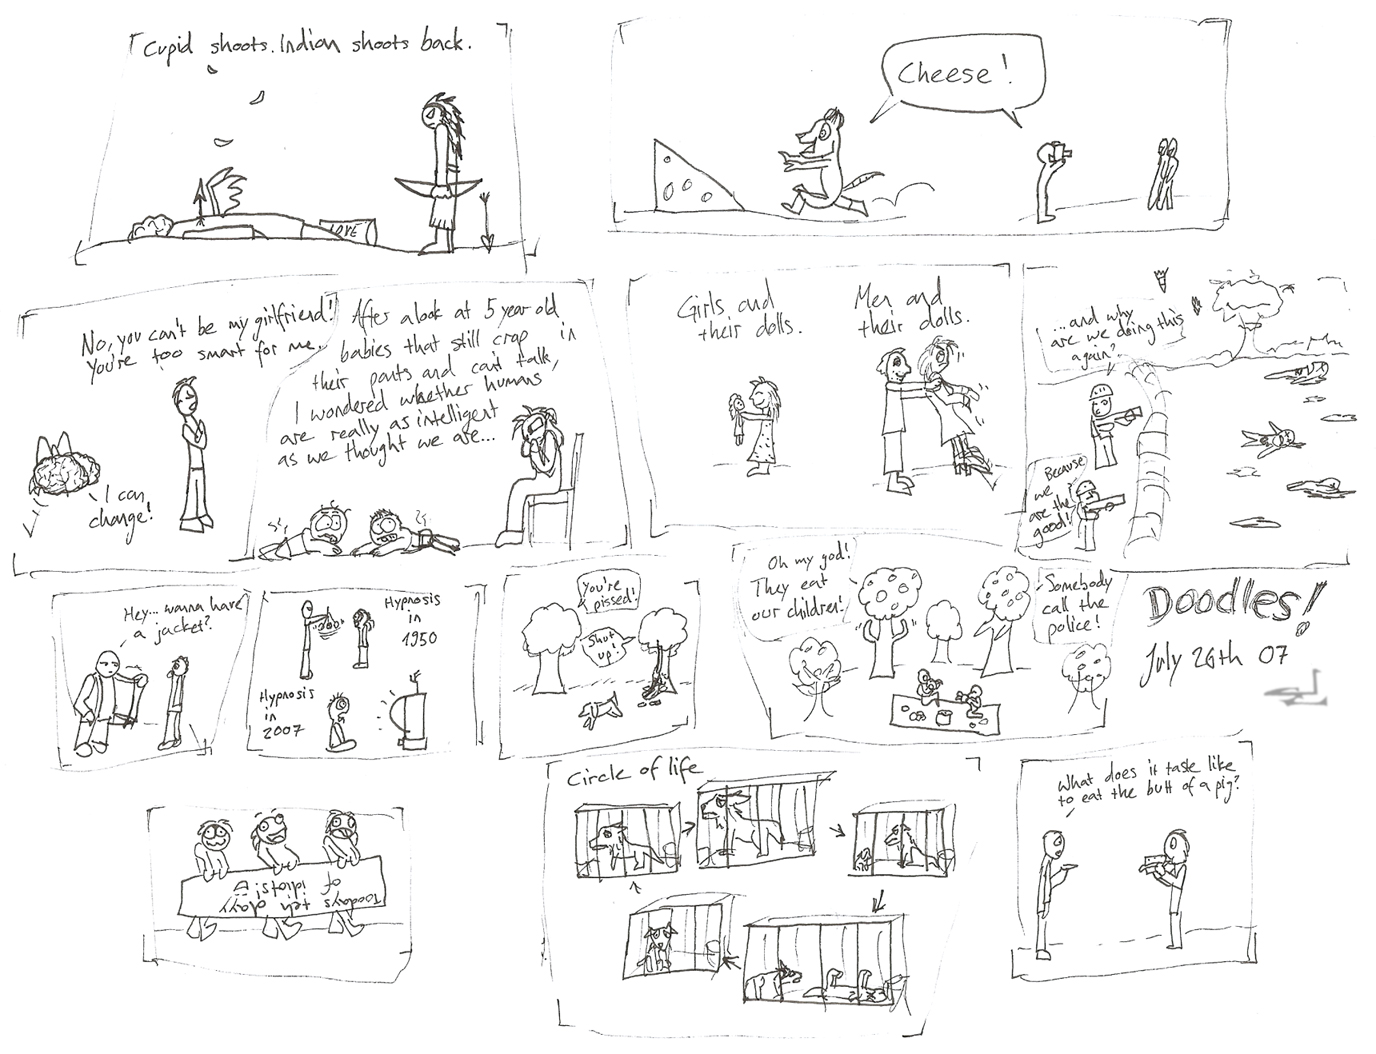 Cupid shoots. Indian shoots back.
LOVE
Cheese!
No, you can't be my girlfriend!
You're too smart for me.
I can
change!
After a look at 5 year old
babies that still crap in
their pants and can't talk,
I wondered whether humans
are really as intelligent
as we thought we are...
Girls and
their dolls.
Men and
their dolls.
...and why
are we doing this
again?
Because
we
are the
good!
Hey... wanna have
a jacket?
Hypnosis
in
1950
Hypnosis
in
2007
You're
pissed!
Shut
up!
Oh my god!
They eat
our children!
Somebody
call the
police!
Doodles!
July 26th 07
Toodays
teh dayy
of idiots!
Circle of life
What does it taste like
to eat the butt of a pig?